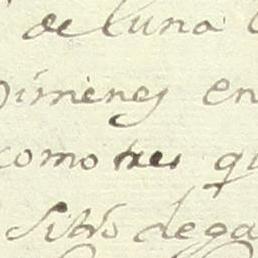 de luna
Jimenes en
como tres qu
Sitio de ga